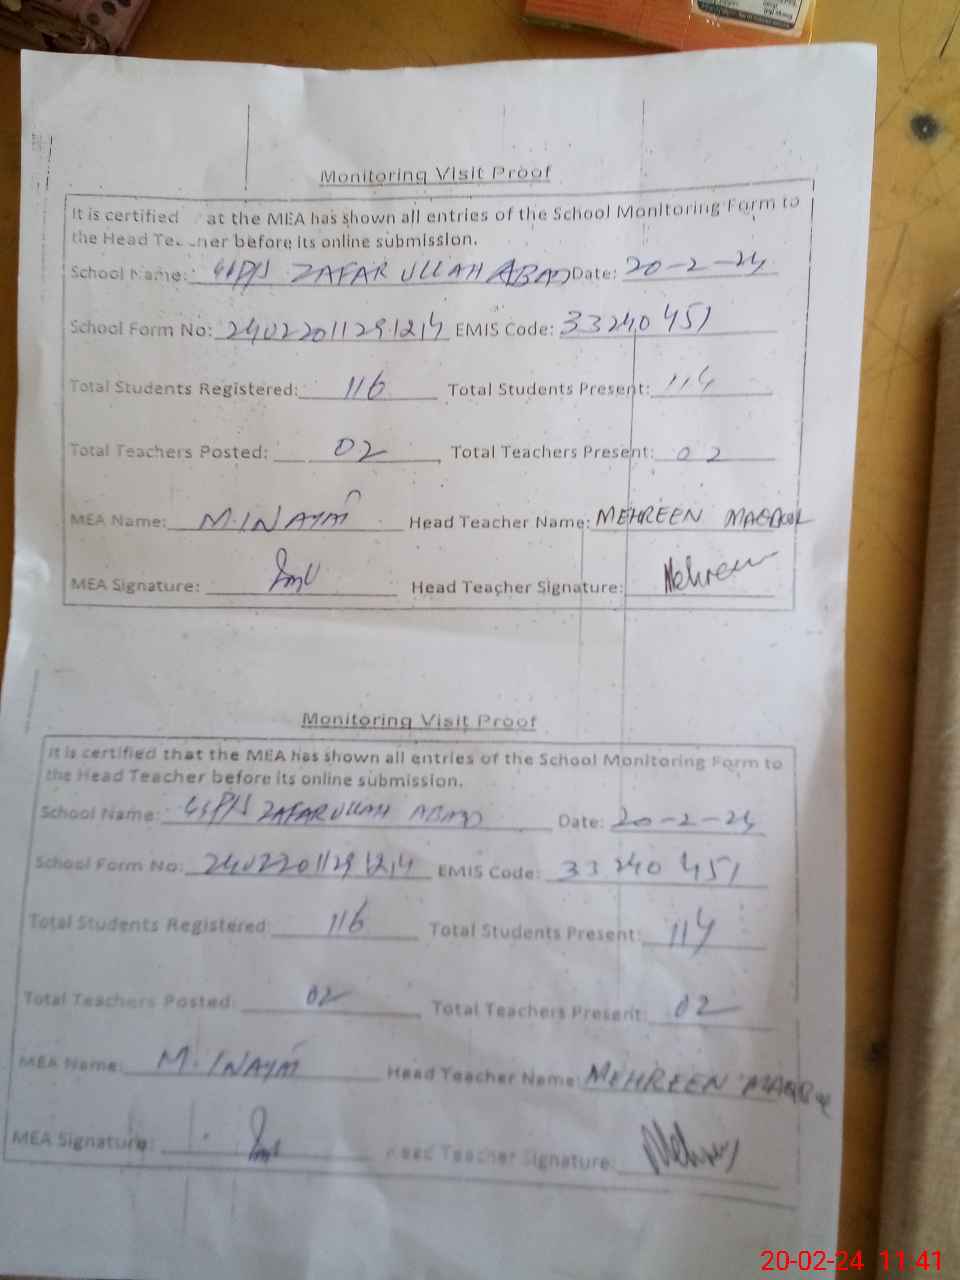 Monitoring Visit Proof
It is certified at the MEA has shown all entries of the School Monitoring Form to
the Head Teacher before its online submission.
School Name: GGPS ZAFAR ULLAH ABAD Date: 20-2-24
School Form No: 24022011291214 EMIS Code: 33240451
Total Students Registered: 116 Total Students Present: 114
Total Teachers Posted: 02 Total Teachers Present: 02
MEA Name: M. INAYAT Head Teacher Name: MEHREEN MAQBOOL
MEA Signature: Head Teacher Signature: Mehreen
Monitoring Visit Proof
It is certified that the MEA has shown all entries of the School Monitoring Form to
the Head Teacher before its online submission.
School Name: GGPS ZAFAR ULLAH ABAD Date: 20-2-24
School Form No: 24022011291214 EMIS Code: 33240451
Total Students Registered: 116 Total Students Present: 114
Total Teachers Posted: 02 Total Teachers Present: 02
MEA Name: M. INAYAT Head Teacher Name: MEHREEN
MEA Signature: Head Teacher Signature: Mehreen
20-02-24 11:41